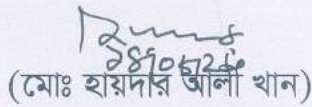 (মোঃ হায়দার আলী খান)